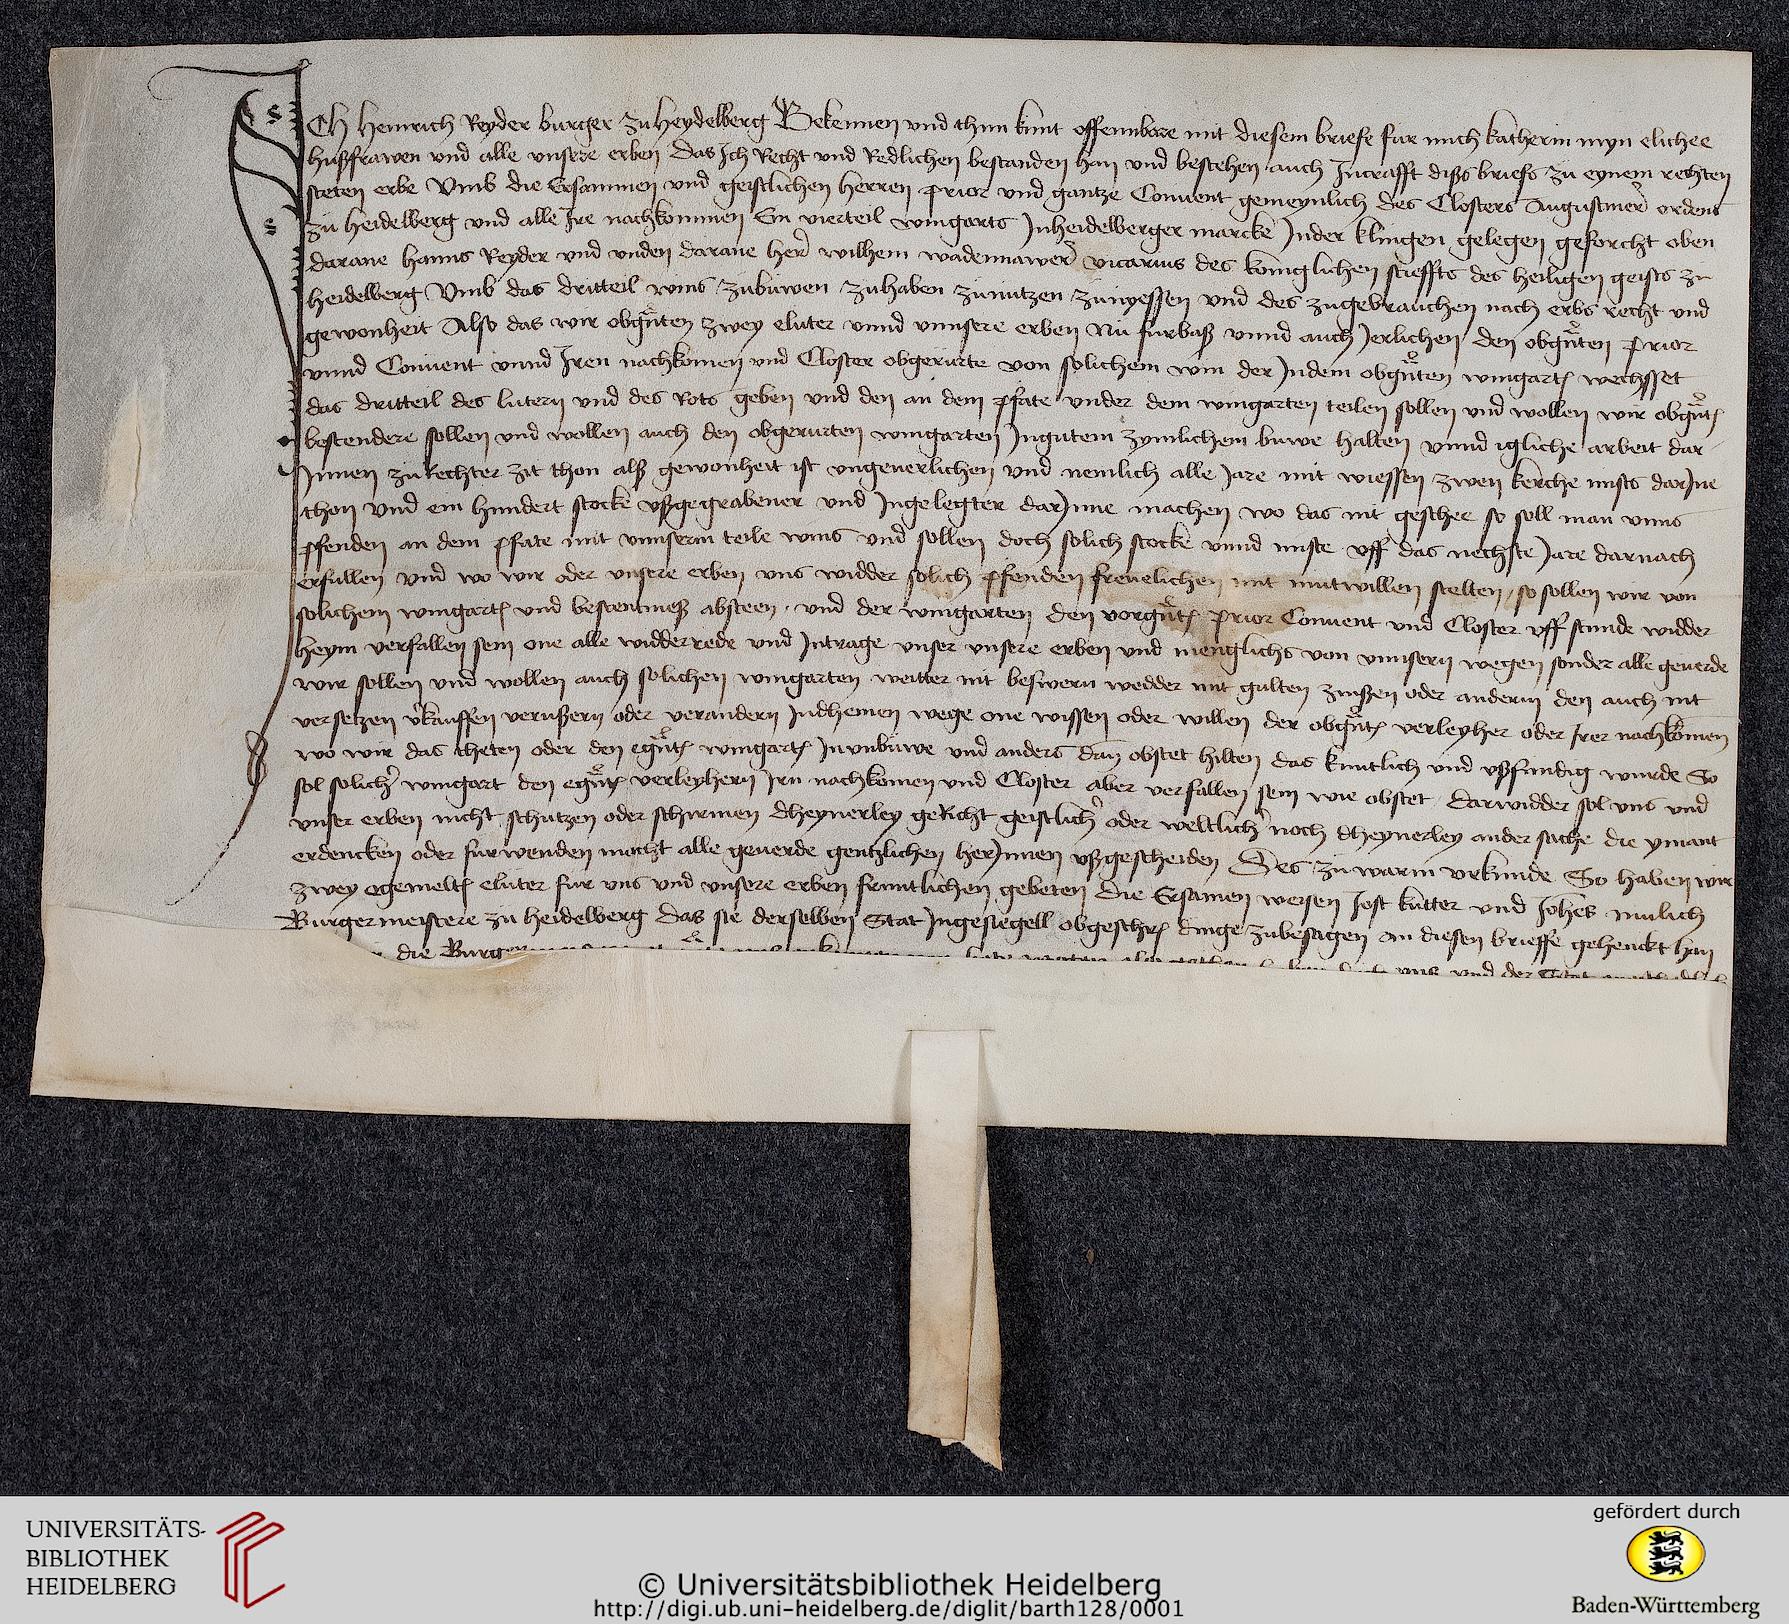 ICH Heinrich Reyder burger zu Heydelberg Bekennen und thun kunt offennbare mit diesem briefe fur mich katherin myn elichee
hußfrawen und alle unsere erben Das Ich Recht und Redlichen bestanden han und bestehen auch Incrafft diß brieffs zu eynem rechten
steten erbe Umb die Ersammen und geistlichen herren prior und gantze Convent gemeynlich des Closters Augustiner ordens
zu Heidelberg und alle Ire nachkommen Ein vierteil wingarts In heidelberger marcke In der klingen gelegen geforcht oben
darane hanns Reyder und unden darane her wilhem wadennawer vicarius des koniglichen stieffts des heiligen geists zu
heidelberg Umb das dritteil wins zubuwen zuhaben zunutzen zunyessen und des zugebrauchen nach erbs recht und
gewonheit Also das wir obgnten zwey eluter unnd unnsere erben Nu furbaß unnd auch Jerlichen den obgnten prior
unnd Convent unnd Iren nachkomen und Closter obgerurte von solichem win der In dem obgnten wingart wechsset
das dritteil des lutern und des Rots geben und den an dem pfate under dem wingarten teilen sollen und wollen wir obgnt
bestendere sollen und wollen auch den obgerurten wingarten In gutem zymlichem buwe halten unnd igliche arbeit dar
Innen zu Rechter zit thon alß gewonheit ist ungeuerlichen und nemlich alle Jare mit wiessen zwen kerche mists darJnne
thon und ein hundert stocke ußgegrabener und Ingelegter darJnne machen wo das nit geschee so soll man unns
pfenden an dem pfate mit unnserm teile wins und sollen doch solich stocke unnd miste uff das nechste Jare darnach
erfullen und wo wir oder unsere erben uns widder solich pfenden freuelichen mit mutwillen stelten / so sollen wir von
solichem wingart und bestentniß absteen und der wingarten den vorgnt prior Convent und Closter uff stunde widder
heym verfallen sein one alle widderrede und Intrage unser unsere erben und menglichs von unnsern wegen sonder alle geuerde
wir sollen und wollen auch solichen wingarten weitter nit beswern wedder mit gulten zinßen oder anderm den auch nit
versetzen vkauffen verußern oder verandern In dheinen wege one wissen oder willen der obgnt verleyher oder Irer nachkomen
wo wir das theten oder den egnt wingart In unbuwe und anders dan obstet hilten das kuntlich und ußfundig wurde So
sol solich wingart den egnt verleyhern Irn nachkomen und Closter aber verfallen sein wie obstet Darwidder sol uns und
unser erben nicht schutzen oder schirmen dheynerley geRicht geistlich oder weltlich noch dheynerley ander sache die ymant
erdencken oder furwenden mocht alle geuerde gentzlichen herJnnen ußgescheiden Des zu warm urkunde So haben wir
zwey egemelt eluter fur uns und unsere erben fruntlichen gebeten Die Ersamen weisen Jost kutter und Johes mulich
Burgermeistere zu heidelberg das sie derselben Stat Ingesiegell obgeschr dinge zubesagen an diesen brieffe gehenckt han
die Burger
UNIVERSITÄTS-
BIBLIOTHEK
HEIDELBERG
© Universitätsbibliothek Heidelberg
http://digi.ub.uni-heidelberg.de/diglit/barth128/0001
gefördert durch
Baden-Württemberg